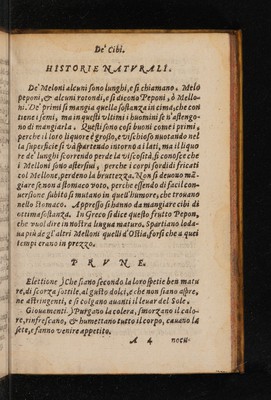 De' Cibi.
HISTORIE NATVRALI.
De' Meloni alcuni sono lunghi, e si chiamano. Melo
peponi, & alcuni rotondi, e si dicono Peponi, ò Mello-
ni. De' primi si mangia quella sostanza in cima, che con
tiene i semi, ma in questi vltimi i huomini se n'astengo-
no di mangiarla. Questi sono cosi buoni come i primi,
perche il loro liquore è grosso, e vischioso nuotando nel
la superficie si và spartendo intorno à i lati, ma il liquo
re de' lunghi scorrendo perde la viscosità, si conosce che
i Melloni sono astersiui, perche i corpi sordidi fricati
col Mellone, perdeno la bruttezza. Non si deuono mã-
giare se non à stomaco voto, perche essendo di facil con-
uersione subito si mutano in quell'humore, che trouano
nello stomaco. Appresso si hanno da mangiare cibi di
ottima sostanza. In Greco si dice questo frutto Pepon,
che vuol dire in nostra lingua maturo. Spartiano loda-
ua più de gl'altri Melloni quelli d'Ostia, forsi che a quei
tempi erano in prezzo.
PRVNE.
Elettione.) Che siano secondo la loro spetie ben matu
re, di scorza sottile, al gusto dolci, e che non siano aspre,
ne astringenti, e si colgano auanti il leuar del Sole.
Giouamenti.) Purgano la colera, smorzano il calo-
re, rinfrescano, & humettano tutto il corpo, cauano la
sete, e fanno venire appetito.
A 4 nocu-